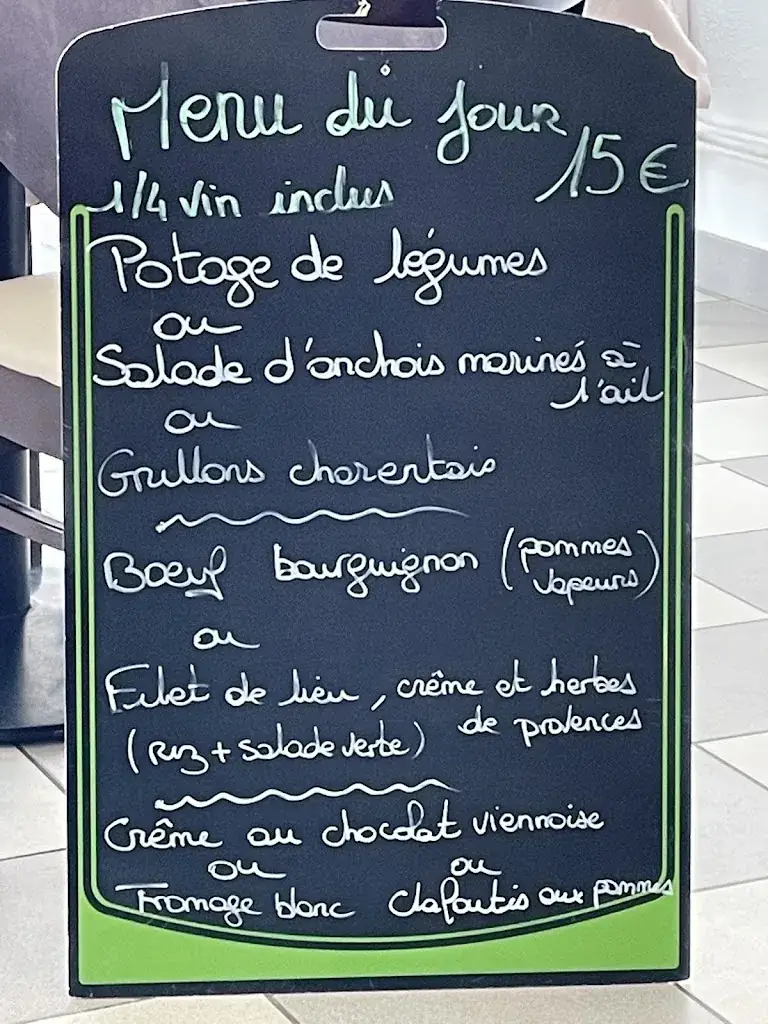 Menu du jour
15€
1/4 vin inclus
Potage de légumes
ou
Salade d'anchois marinés à
l'ail
ou
Grillons charentais
Bœuf bourguignon (pommes
vapeurs)
ou
Filet de lieu, crême et herbes
de provences
(Riz + salade verte)
Crême au chocolat viennoise
ou ou
Fromage blanc Clafoutis aux pommes